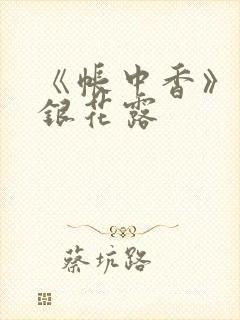 《帐中香》
银花露
蔡坑路